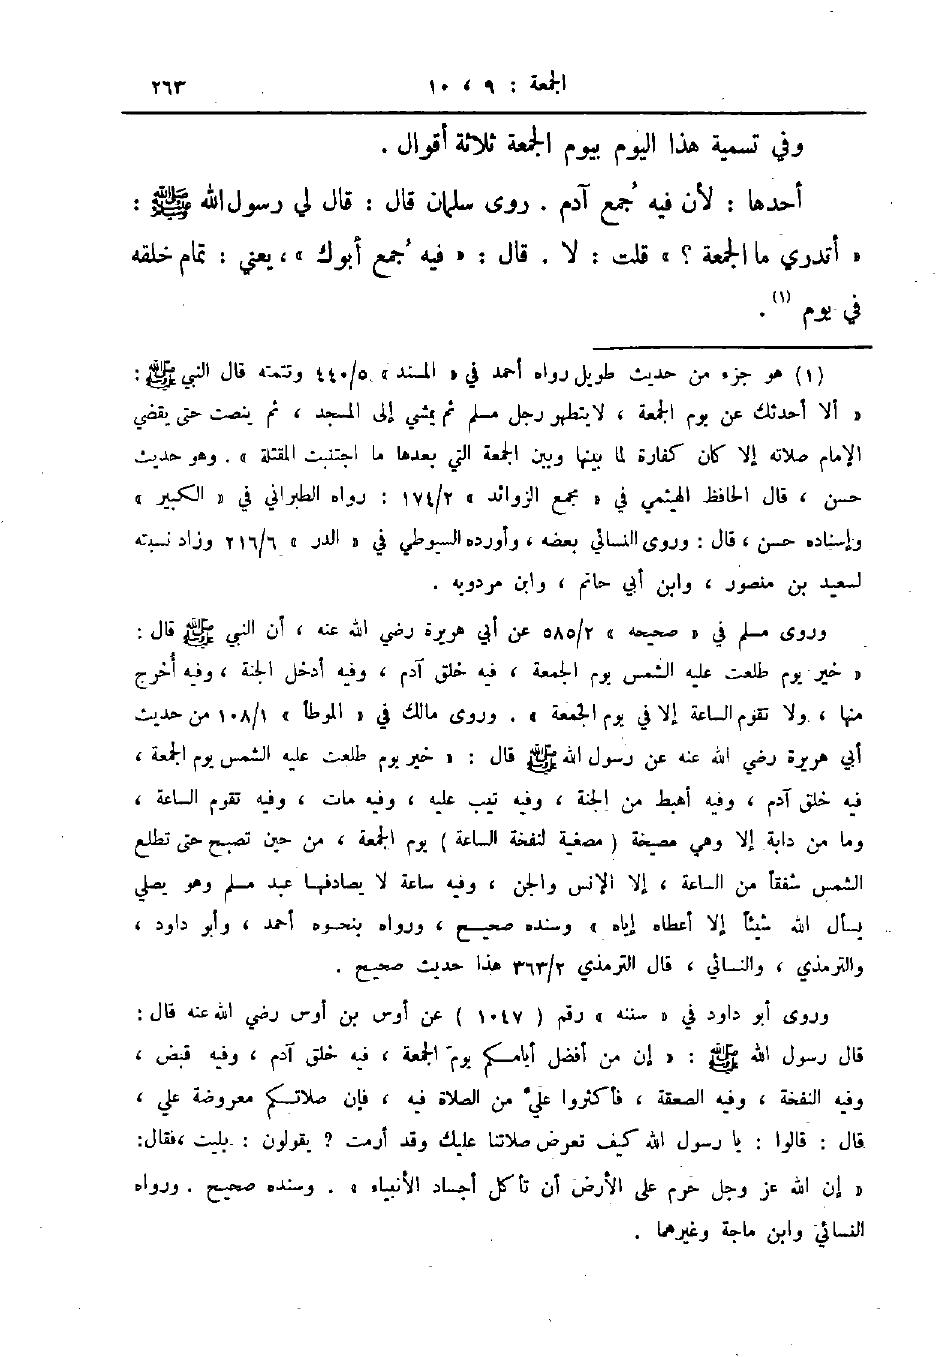 الجمعة : ٩ ، ١٠ ٢٦٣
وفي تسمية هذا اليوم بيوم الجمعة ثلاثة أقوال .
أحدها : لأن فيه جُمع آدم . روى سلمان قال : قال لي رسول الله ﷺ :
« أتدري ما الجمعة ؟ » قلت : لا . قال : « فيه جُمع أبوك » ، يعني : تمام خلقه
في يوم (١) .
(١) هو جزء من حديث طويل رواه أحمد في « المسند » ٤٤٠/٥ وتتمته قال النبي ﷺ :
« ألا أحدثك عن يوم الجمعة ، لا يتطهر رجل مسلم ثم يمشي إلى المسجد ، ثم ينصت حتى يقضي
الإمام صلاته إلا كان كفارة لما بينها وبين الجمعة التي بعدها ما اجتنبت المقتلة » . وهو حديث
حسن ، قال الحافظ الهيثمي في « مجمع الزوائد » ١٧٤/٢ : رواه الطبراني في « الكبير »
وإسناده حسن ، قال : وروى النسائي بعضه ، وأورده السيوطي في « الدر » ٢١٦/٦ وزاد نسبته
لسعيد بن منصور ، وابن أبي حاتم ، وابن مردويه .
وروى مسلم في « صحيحه » ٥٨٥/٢ عن أبي هريرة رضي الله عنه ، أن النبي ﷺ قال :
« خير يوم طلعت عليه الشمس يوم الجمعة ، فيه خلق آدم ، وفيه أدخل الجنة ، وفيه أُخرج
منها ، ولا تقوم الساعة إلا في يوم الجمعة » . وروى مالك في « الموطأ » ١٠٨/١ من حديث
أبي هريرة رضي الله عنه عن رسول الله ﷺ قال : « خير يوم طلعت عليه الشمس يوم الجمعة ،
فيه خلق آدم ، وفيه أهبط من الجنة ، وفيه تيب عليه ، وفيه مات ، وفيه تقوم الساعة ،
وما من دابة إلا وهي مصيخة ( مصغية لنفخة الساعة ) يوم الجمعة ، من حين تصبح حتى تطلع
الشمس شفقاً من الساعة ، إلا الإنس والجن ، وفيه ساعة لا يصادفها عبد مسلم وهو يصلي
يسأل الله شيئاً إلا أعطاه إياه » وسنده صحيح ، ورواه بنحوه أحمد ، وأبو داود ،
والترمذي ، والنسائي ، قال الترمذي ٣٦٣/٢ هذا حديث صحيح .
وروى أبو داود في « سننه » رقم ( ١٠٤٧ ) عن أوس بن أوس رضي الله عنه قال :
قال رسول الله ﷺ : « إن من أفضل أيامكم يومَ الجمعة ، فيه خلق آدم ، وفيه قبض ،
وفيه النفخة ، وفيه الصعقة ، فأكثروا عليّ من الصلاة فيه ، فإن صلاتكم معروضة علي ،
قال : قالوا : يا رسول الله كيف تعرض صلاتنا عليك وقد أرمت ؟ يقولون : بليت ، فقال:
« إن الله عز وجل حرم على الأرض أن تأكل أجساد الأنبياء » . وسنده صحيح . ورواه
النسائي وابن ماجة وغيرهما .